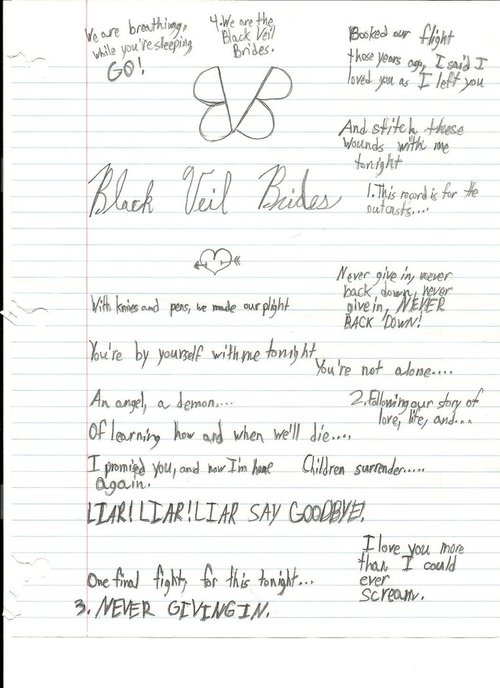 We are breathing,
while you're sleeping
GO!
4. We are the
Black Veil
Brides.
Booked our flight
those years ago, I said I
loved you as I left you
And stitch these
wounds with me
tonight
Black Veil Brides
1. This record is for the
outcasts...
Never give in, never
back down, never
give in, NEVER
BACK DOWN!
With knives and pens, we made our plight
You're by yourself with me tonight
You're not alone....
An angel, a demon....
2. Following our story of
love, life, and...
Of learning how and when we'll die....
I promised you, and now I'm home
again.
Children surrender.....
LIAR! LIAR! LIAR SAY GOODBYE!
I love you more
than I could
ever
scream.
One final fight, for this tonight...
3. NEVER GIVING IN.